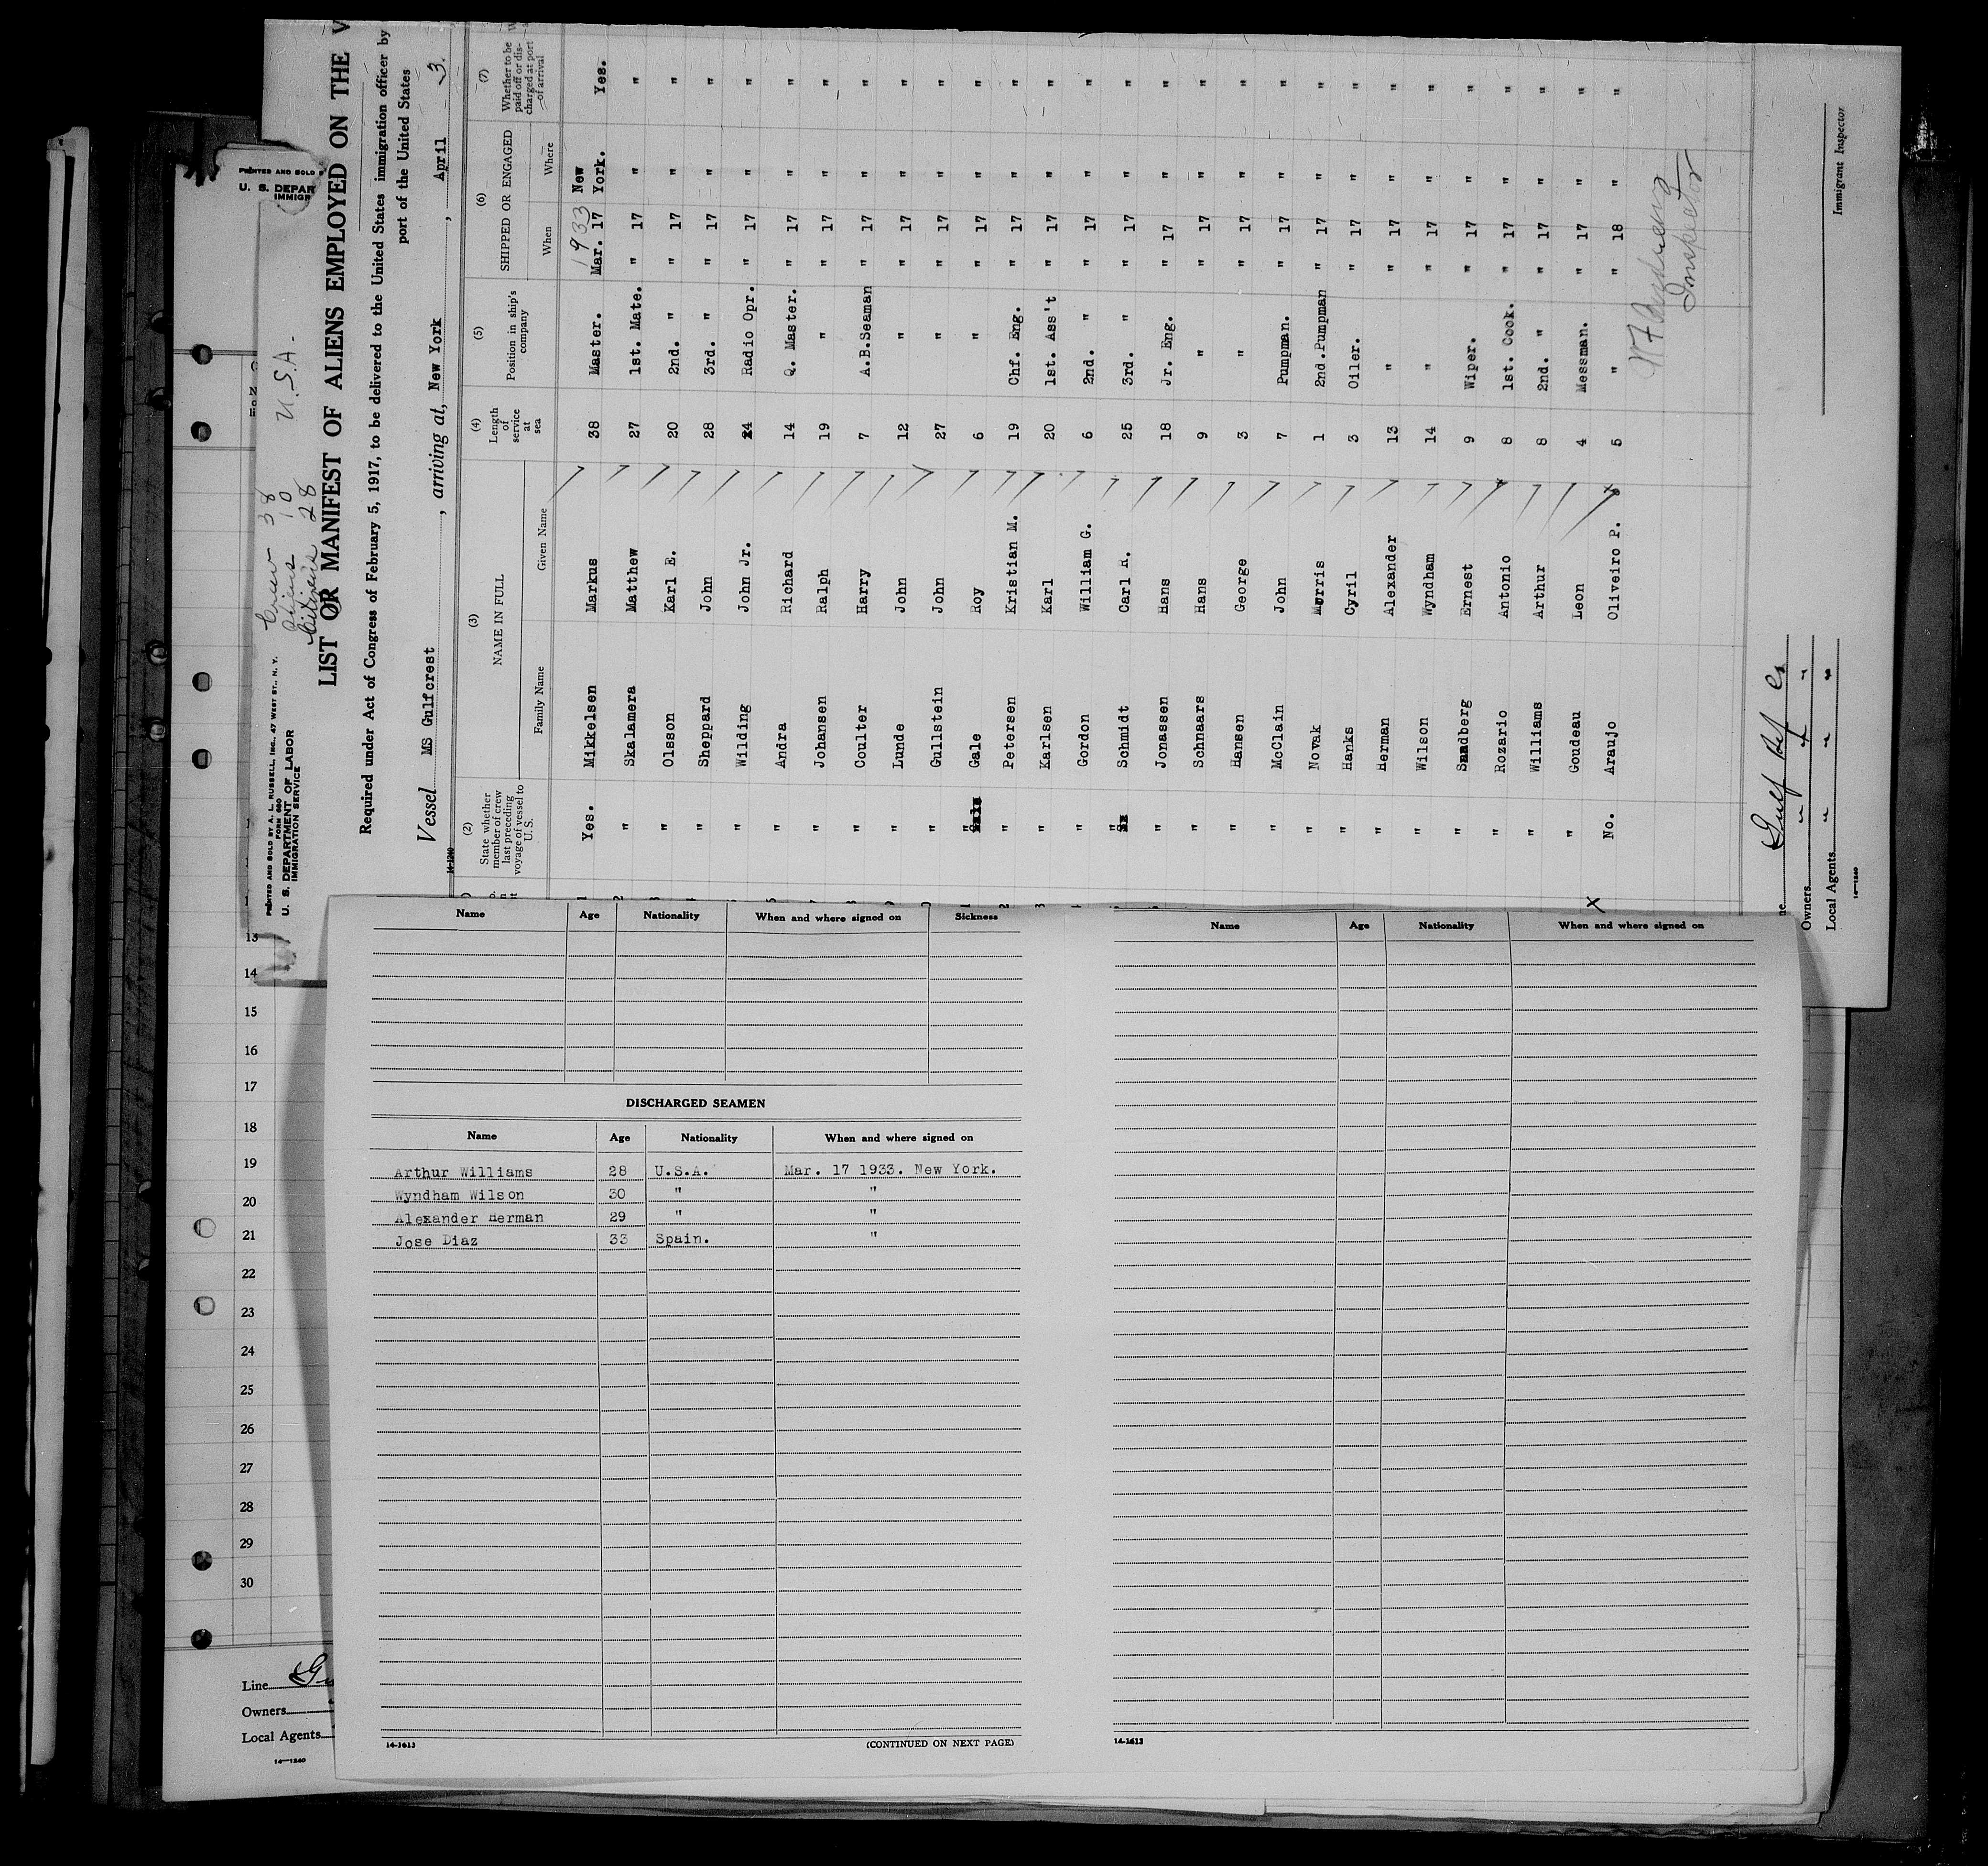 PRINTED AND SOLD
U. S. DEPAR
IMMIGR
U.S.A.
Crew 38
Aliens 10
Citizens 28
PRINTED AND SOLD BY A. L. RUSSELL, INC., 47 WEST ST., N. Y.
FORM 680
U. S. DEPARTMENT OF LABOR
IMMIGRATION SERVICE
LIST OR MANIFEST OF ALIENS EMPLOYED ON THE V
Required under Act of Congress of February 5, 1917, to be delivered to the United States immigration officer by
port of the United States
Vessel MS Gulfcrest, arriving at, New York, April 3.
14-1240
(2) (3) (4) (5) (6) (7)
State whether member of crew last preceding voyage of vessel to U.S. NAME IN FULL Length of service at sea Position in ship's company SHIPPED OR ENGAGED Whether to be paid off or discharged at port of arrival
Family Name Given Name When Where
1933
Yes. Mikkelsen Markus 38 Master. Mar. 17 New York. Yes.
" Skalamera Matthew 27 1st. Mate. " 17 " "
" Olsson Karl E. 20 2nd. " " 17 " "
" Sheppard John 28 3rd. " " 17 " "
" Wilding John Jr. 24 Radio Opr. " 17 " "
" Andra Richard 14 Q. Master. " 17 " "
" Johansen Ralph 19 " " 17 " "
" Coulter Harry 7 A.B.Seaman " 17 " "
" Lunde John 12 " " 17 " "
" Gullstein John 27 " " 17 " "
" Gale Roy 6 " " 17 " "
" Petersen Kristian M. 19 Chf. Eng. " 17 " "
" Karlsen Karl 20 1st. Ass't " 17 " "
" Gordon William G. 6 2nd. " " 17 " "
" Schmidt Carl R. 25 3rd. " " 17 " "
" Jonassen Hans 18 Jr. Eng. " 17 " "
" Schnaars Hans 9 " " 17 " "
" Hansen George 3 " " 17 " "
" McClain John 7 Pumpman. " 17 " "
" Novak Morris 1 2nd.Pumpman " 17 " "
" Hanks Cyril 3 Oiler. " 17 " "
" Herman Alexander 13 " " 17 " "
" Wilson Wyndham 14 " " 17 " "
" Sandberg Ernest 9 Wiper. " 17 " "
" Rozario Antonio 8 1st. Cook. " 17 " "
" Williams Arthur 8 2nd. " " 17 " "
" Goudeau Leon 4 Messman. " 17 " "
No. Araujo Oliveiro P. 5 " " 18 " "
Inspector
Immigrant Inspector
ne Gulf
Owners " " "
Local Agents " " "
14-1240
X
Name Age Nationality When and where signed on Sickness
DISCHARGED SEAMEN
Name Age Nationality When and where signed on
Arthur Williams 28 U.S.A. Mar. 17 1933. New York.
Wyndham Wilson 30 " "
Alexander Herman 29 " "
Jose Diaz 33 Spain. "
14-1613 (CONTINUED ON NEXT PAGE)
Name Age Nationality When and where signed on
14-1613
13
14
15
16
17
18
19
20
21
22
23
24
25
26
27
28
29
30
Line
Owners
Local Agents
14-1240